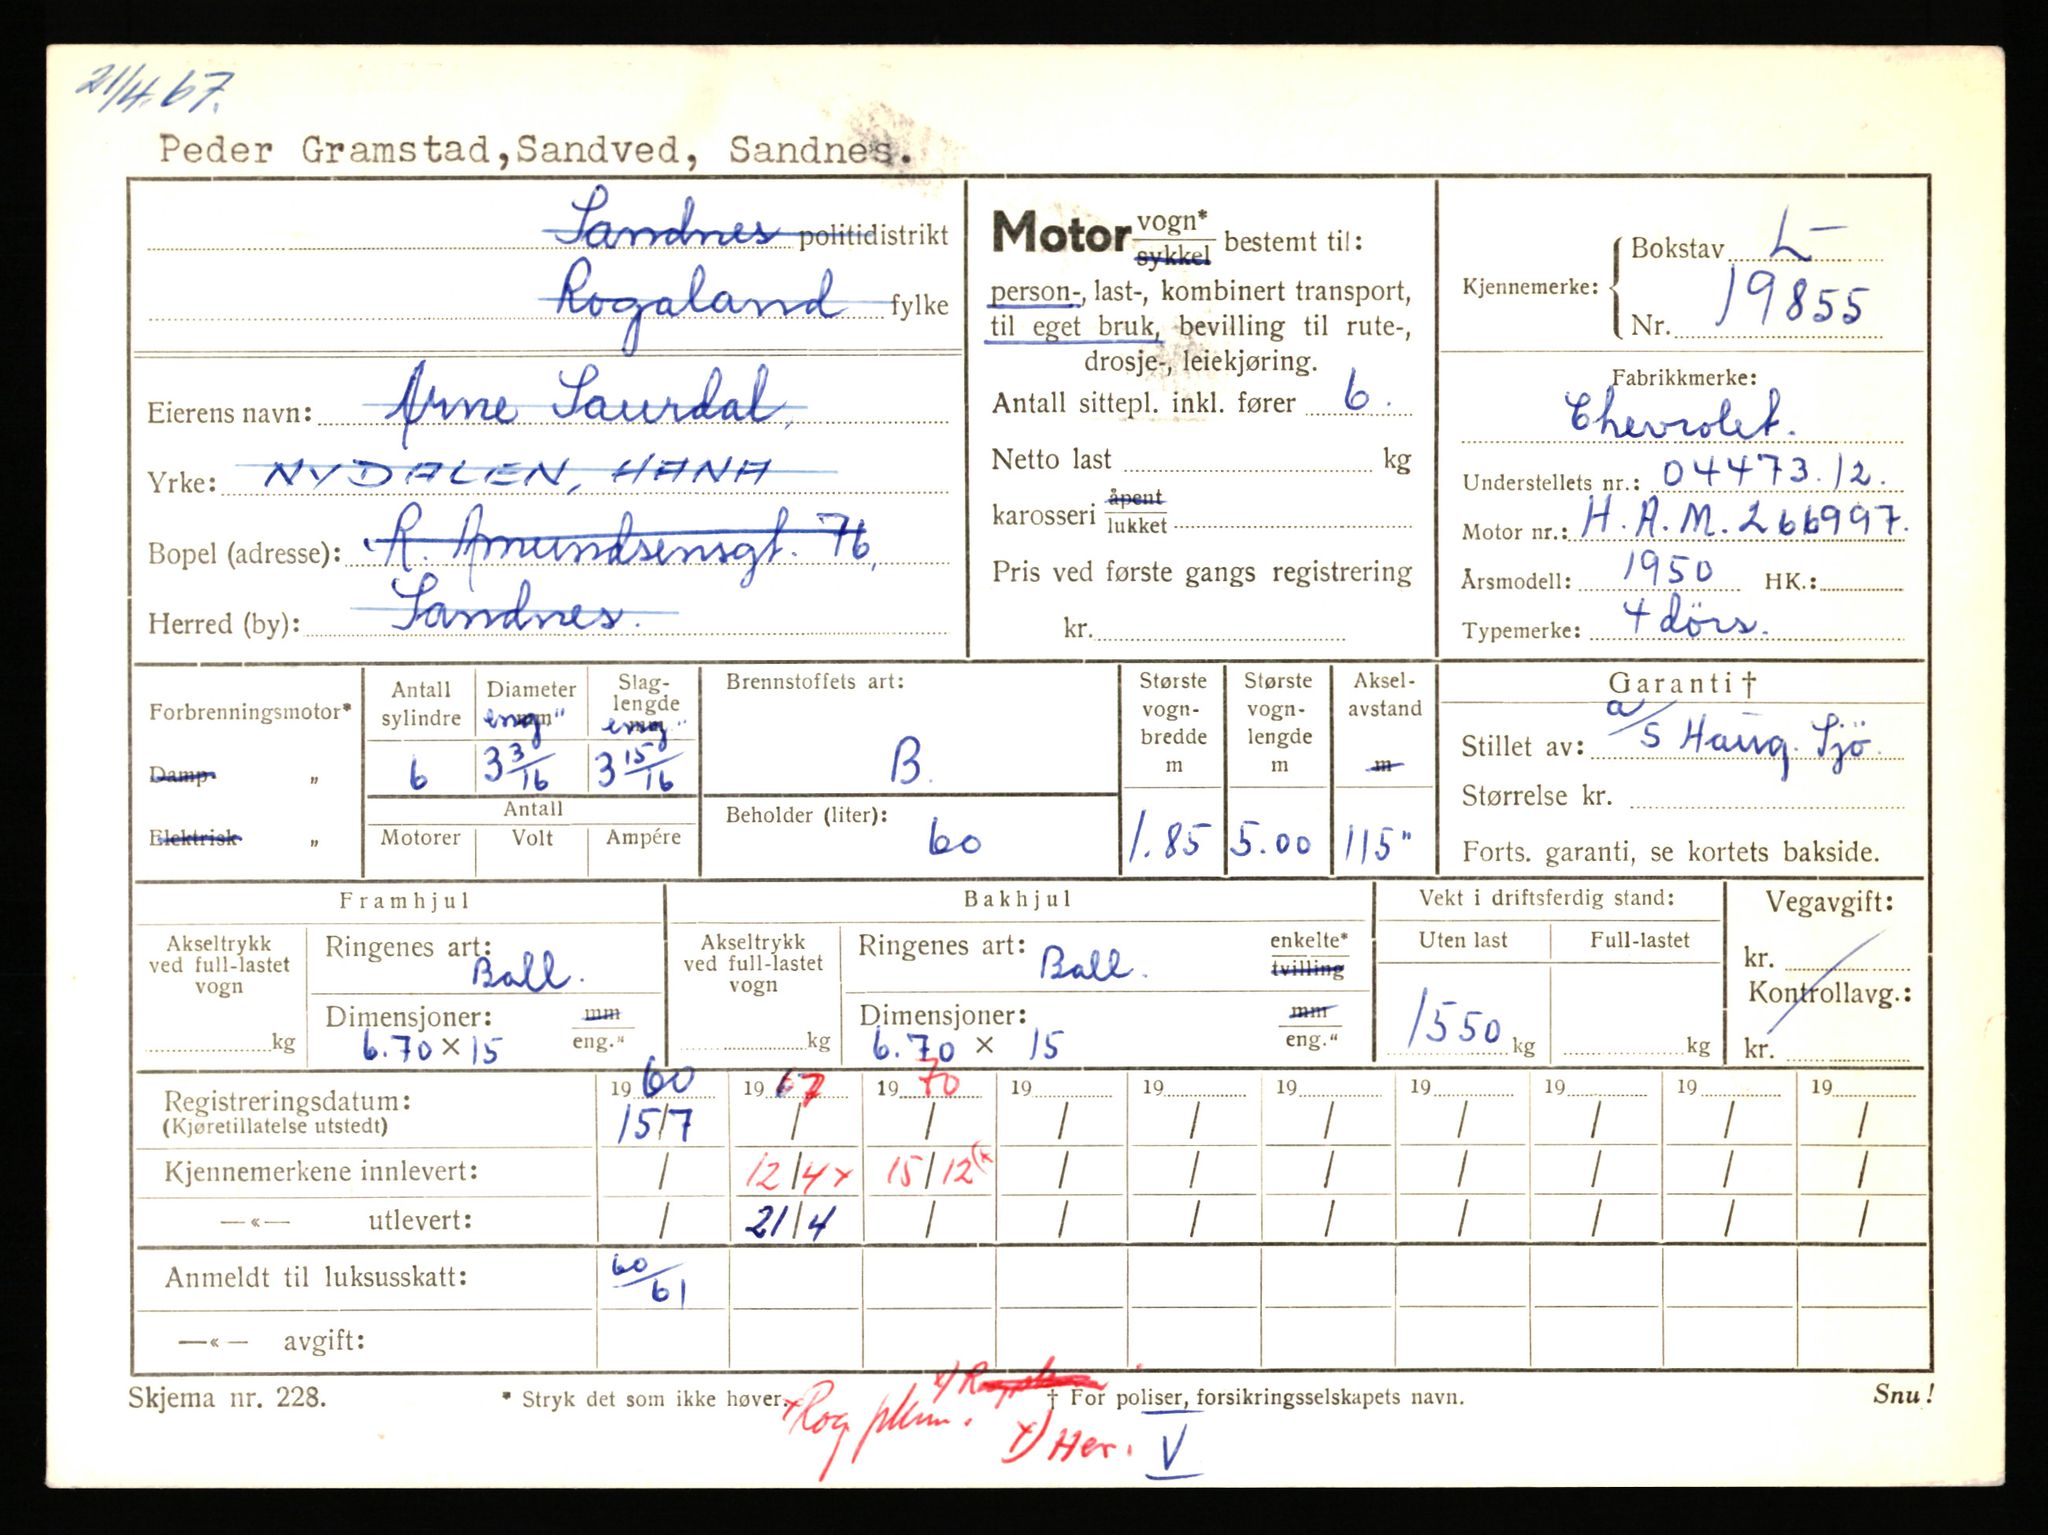 21/4.67.
Peder Gramstad,Sandved, Sandnes.
Sandnes politidistrikt
Rogaland fylke
Eierens navn: Arne Saurdal,
Yrke: NYDALEN, HANA
Bopel (adresse): R. Amundsensgt. 76,
Herred (by): Sandnes.
Motor vogn* sykkel bestemt til:
person-, last-, kombinert transport,
til eget bruk, bevilling til rute-,
drosje-, leiekjøring.
Antall sittepl. inkl. fører 6.
Netto last kg
karosseri åpent lukket
Pris ved første gangs registrering
kr.
Kjennemerke: Bokstav L-
Nr. 19855
Fabrikkmerke:
Chevrolet.
Understellets nr.: 04473.12.
Motor nr.: H.A.M. 266997.
Årsmodell: 1950 HK.:
Typemerke: 4 dörs.
Forbrenningsmotor*
Damp "
Elektrisk "
Antall sylindre 6
Diameter mm eng" 3 3/16
Slag-lengde mm eng" 3 15/16
Antall
Motorer Volt Ampére
Brennstoffets art:
B.
Beholder (liter):
60
Største vogn-bredde m 1.85
Største vogn-lengde m 5.00
Aksel-avstand m 115"
Garanti †
Stillet av: a/s Haug. Sjö.
Størrelse kr.
Forts. garanti, se kortets bakside.
Framhjul
Akseltrykk ved full-lastet vogn kg
Ringenes art: Ball.
Dimensjoner: mm eng."
6.70 × 15
Bakhjul
Akseltrykk ved full-lastet vogn kg
Ringenes art: Ball. enkelte* tvilling
Dimensjoner: mm eng."
6.70 × 15
Vekt i driftsferdig stand:
Uten last Full-lastet
1550 kg kg
Vegavgift:
kr.
Kontrollavg.:
kr.
19 60 19 67 19 70 19 19 19 19 19 19 19
Registreringsdatum: 15/7 / / / / / / / / /
(Kjøretillatelse utstedt)
Kjennemerkene innlevert: / 12/4 x 15/12 (x / / / / / / /
—«— utlevert: / 21/4 / / / / / / / /
Anmeldt til luksusskatt: 60/61
—«— avgift:
Skjema nr. 228. * Stryk det som ikke høver. † For poliser, forsikringsselskapets navn. Snu!
x Rog
x) Her. V